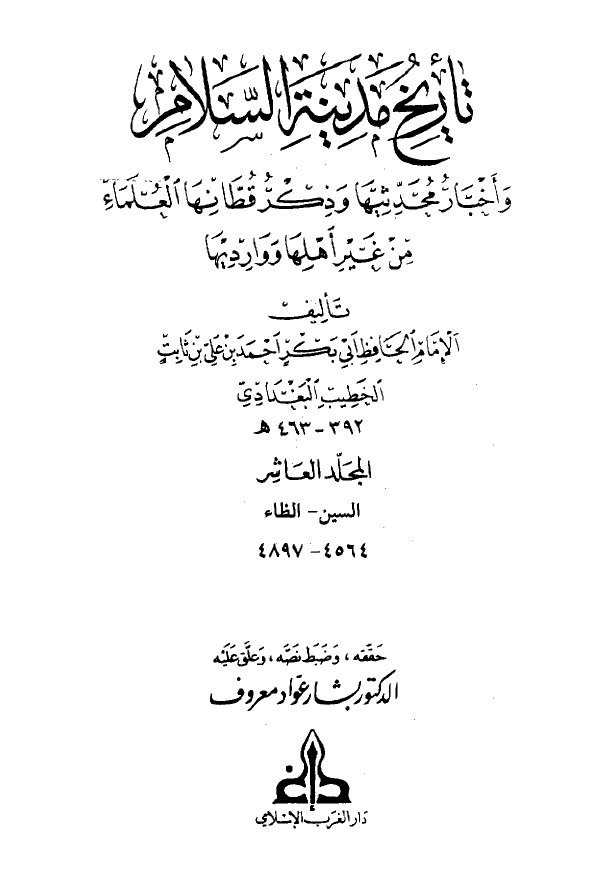 تَأْرِيخُ مَدِينَةِ السَّلَامِ
وَأَخْبَارُ مُحَدِّثِيهَا وَذِكْرُ قُطَّانِهَا الْعُلَمَاءِ
مِنْ غَيْرِ أَهْلِهَا وَوَارِدِيهَا
تَأْلِيف
الْإِمَامِ الْحَافِظِ أَبِي بَكْرٍ أَحْمَدَ بْنِ عَلِيِّ بْنِ ثَابِتٍ
الْخَطِيبِ الْبَغْدَادِيِّ
٣٩٢ - ٤٦٣ هـ
المجلّد العاشر
السين - الظاء
٤٥٦٤ - ٤٨٩٧
حقّقه، وضبط نصّه، وعلّق عليه
الدكتور بشار عوّاد معروف
دار الغرب الإسلامي